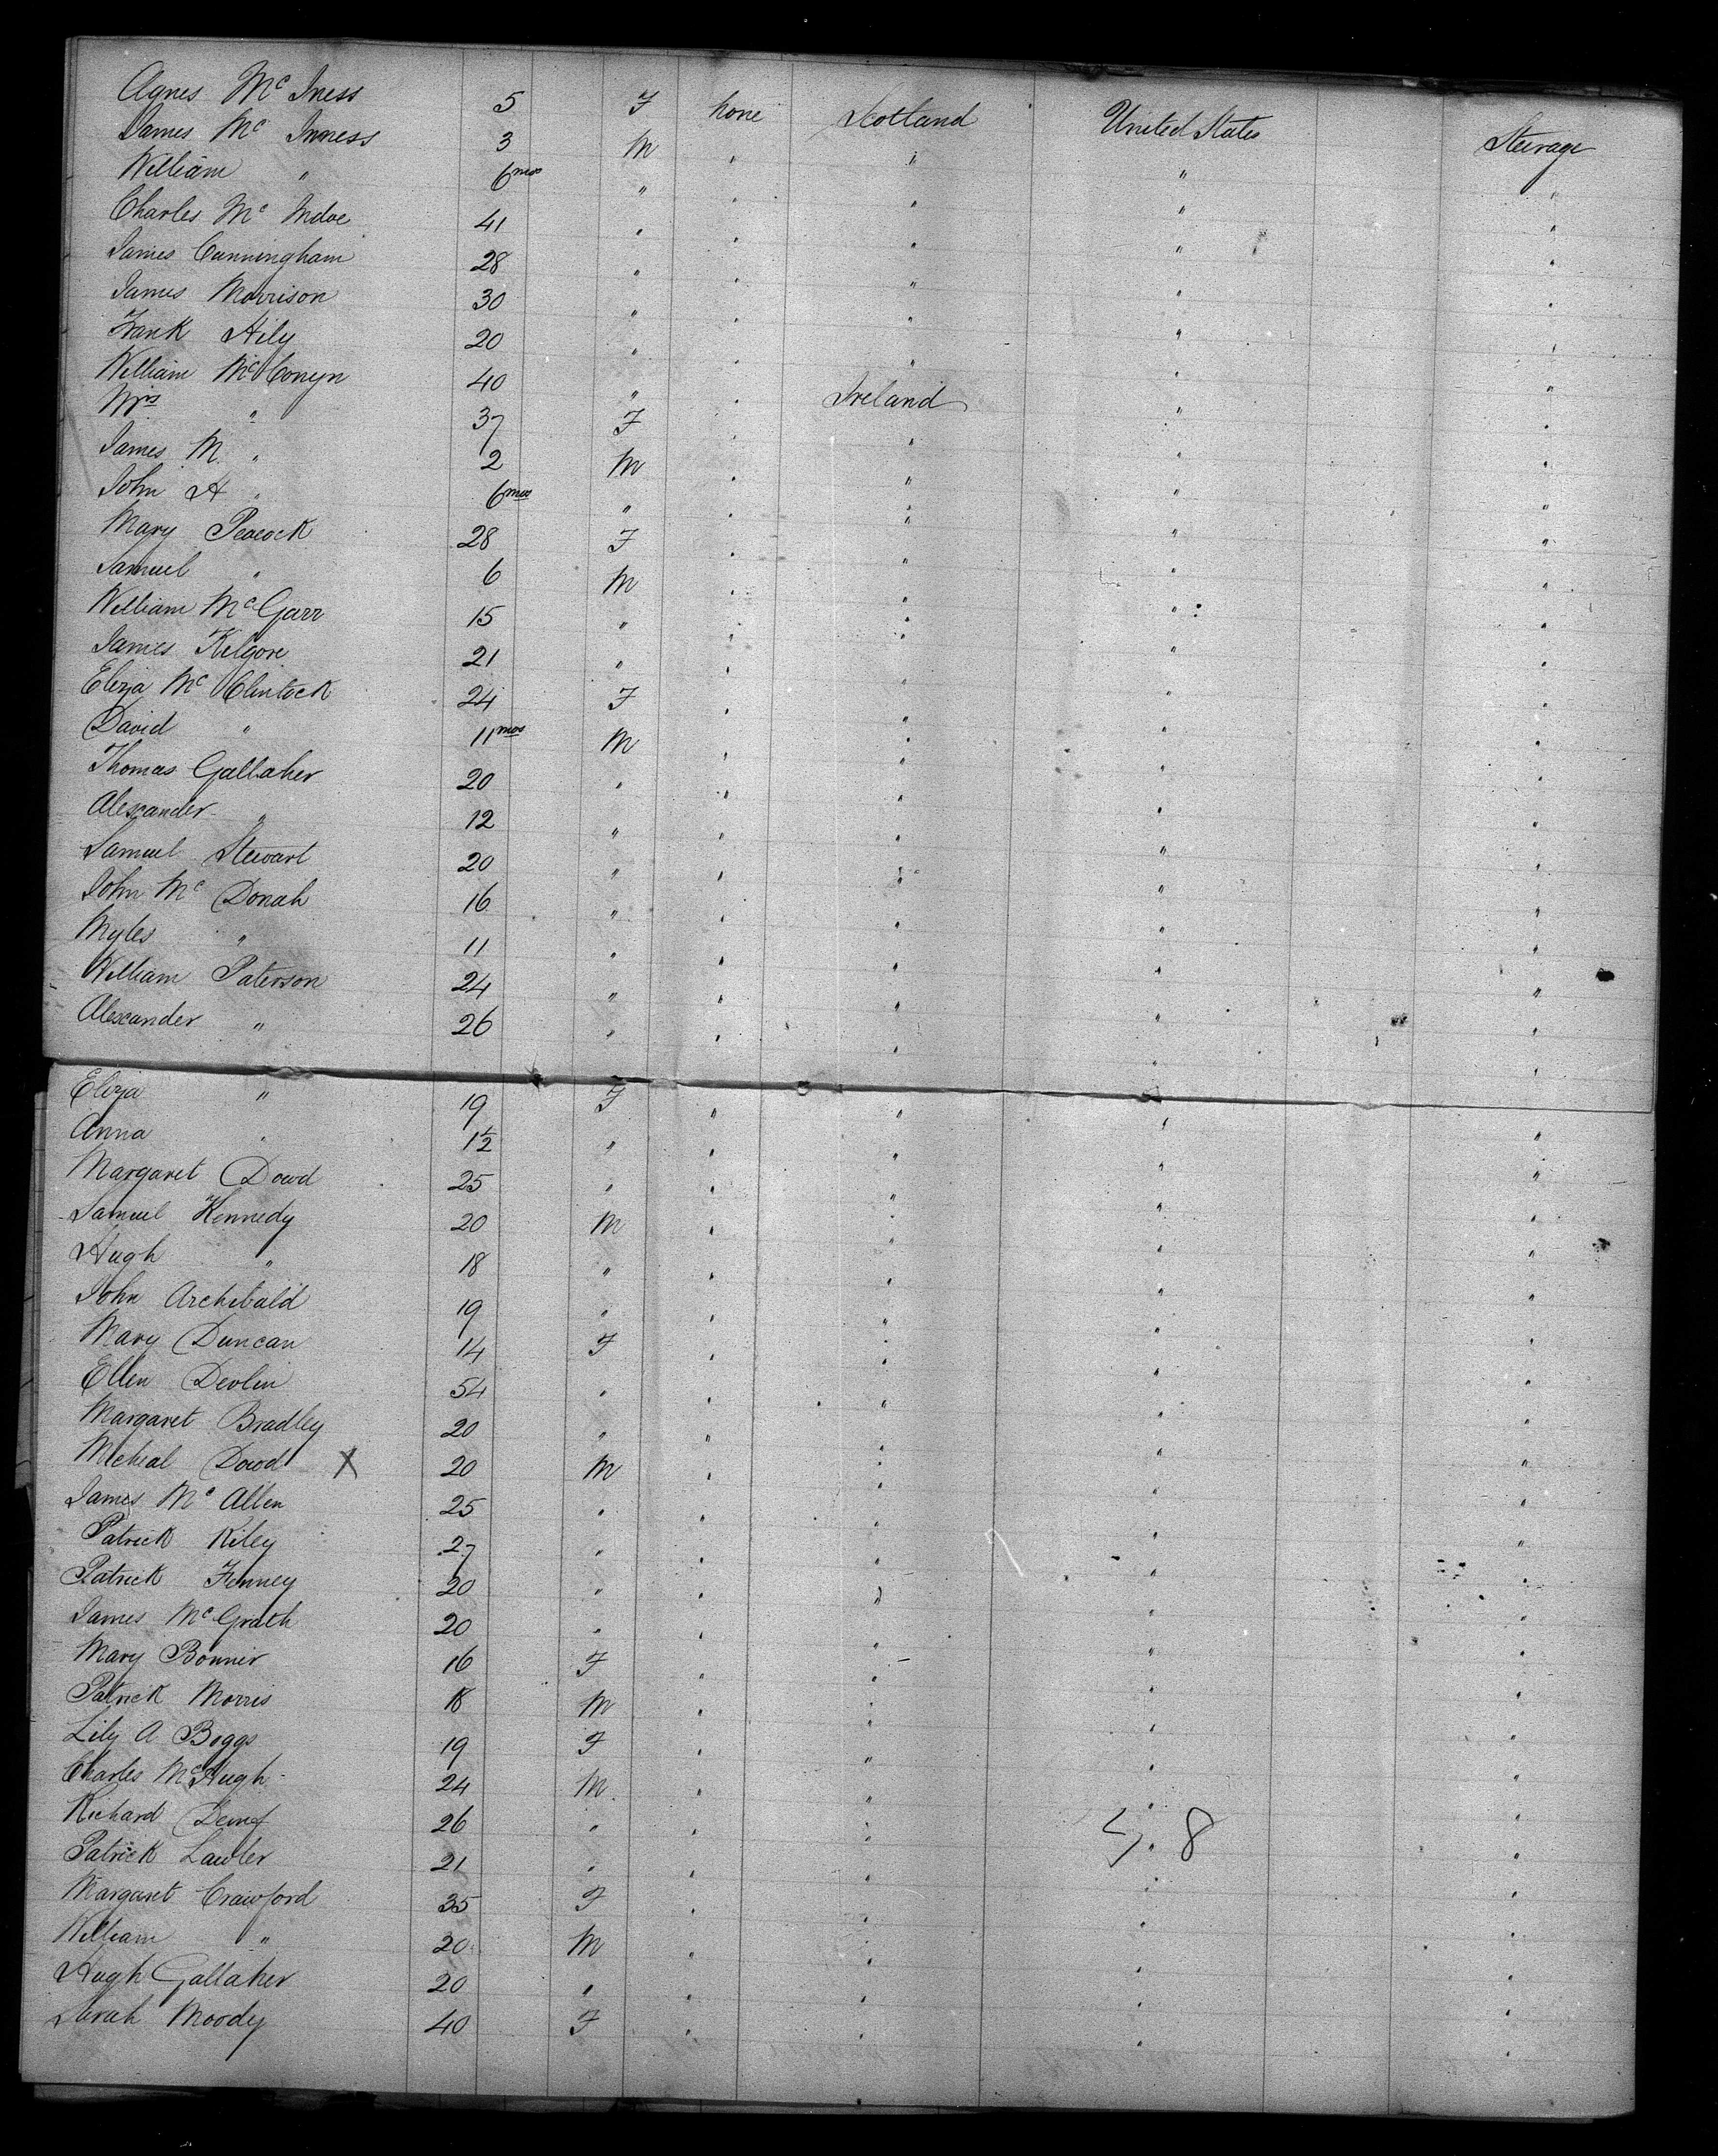 Agnes Mc Iness 5 F none Scotland United States Steerage
James Mc Inness 3 M " " " "
William " 6 mos " " " " "
Charles Mc Indoe 41 " " " " "
James Cunningham 28 " " " " "
James Morrison 30 " " " " "
Frank Hily 20 " " " " "
William McConyn 40 " " Ireland " "
Mrs " 37 F " " " "
James M. " 2 M " " " "
John A " 6 mos " " " " "
Mary Peacock 28 F " " " "
Samuel " 6 M " " " "
William McGarr 15 " " " " "
James Kilgore 21 " " " " "
Eliza Mc Clintock 24 F " " " "
David " 11 mos M " " " "
Thomas Gallaher 20 " " " " "
Alexander " 12 " " " " "
Samuel Stewart 20 " " " " "
John Mc Donah 16 " " " " "
Myles " 11 " " " " "
William Paterson 24 " " " " "
Alexander " 26 " " " " "
Eliza " 19 F " " " "
Anna " 1½ " " " " "
Margaret Dowd 25 " " " " "
Samuel Kennedy 20 M " " " "
Hugh " 18 " " " " "
John Archibald 19 " " " " "
Mary Duncan 14 F " " " "
Ellen Devlin 54 " " " " "
Margaret Bradley 20 " " " " "
Micheal Dowd X 20 M " " " "
James Mc Allen 25 " " " " "
Patrick Kiley 27 " " " " "
Patrick Fenney 20 " " " " "
James McGrath 20 " " " " "
Mary Bonner 16 F " " " "
Patrick Morris 18 M " " " "
Lily A Boggs 19 F " " " "
Charles McHugh 24 M " " " "
Richard 26 " " " " "
Patrick Lawler 21 " " " 8 "
Margaret Crawford 35 F " " " "
William " 20 M " " " "
Hugh Gallaher 20 " " " " "
Sarah Moody 40 F " " " "